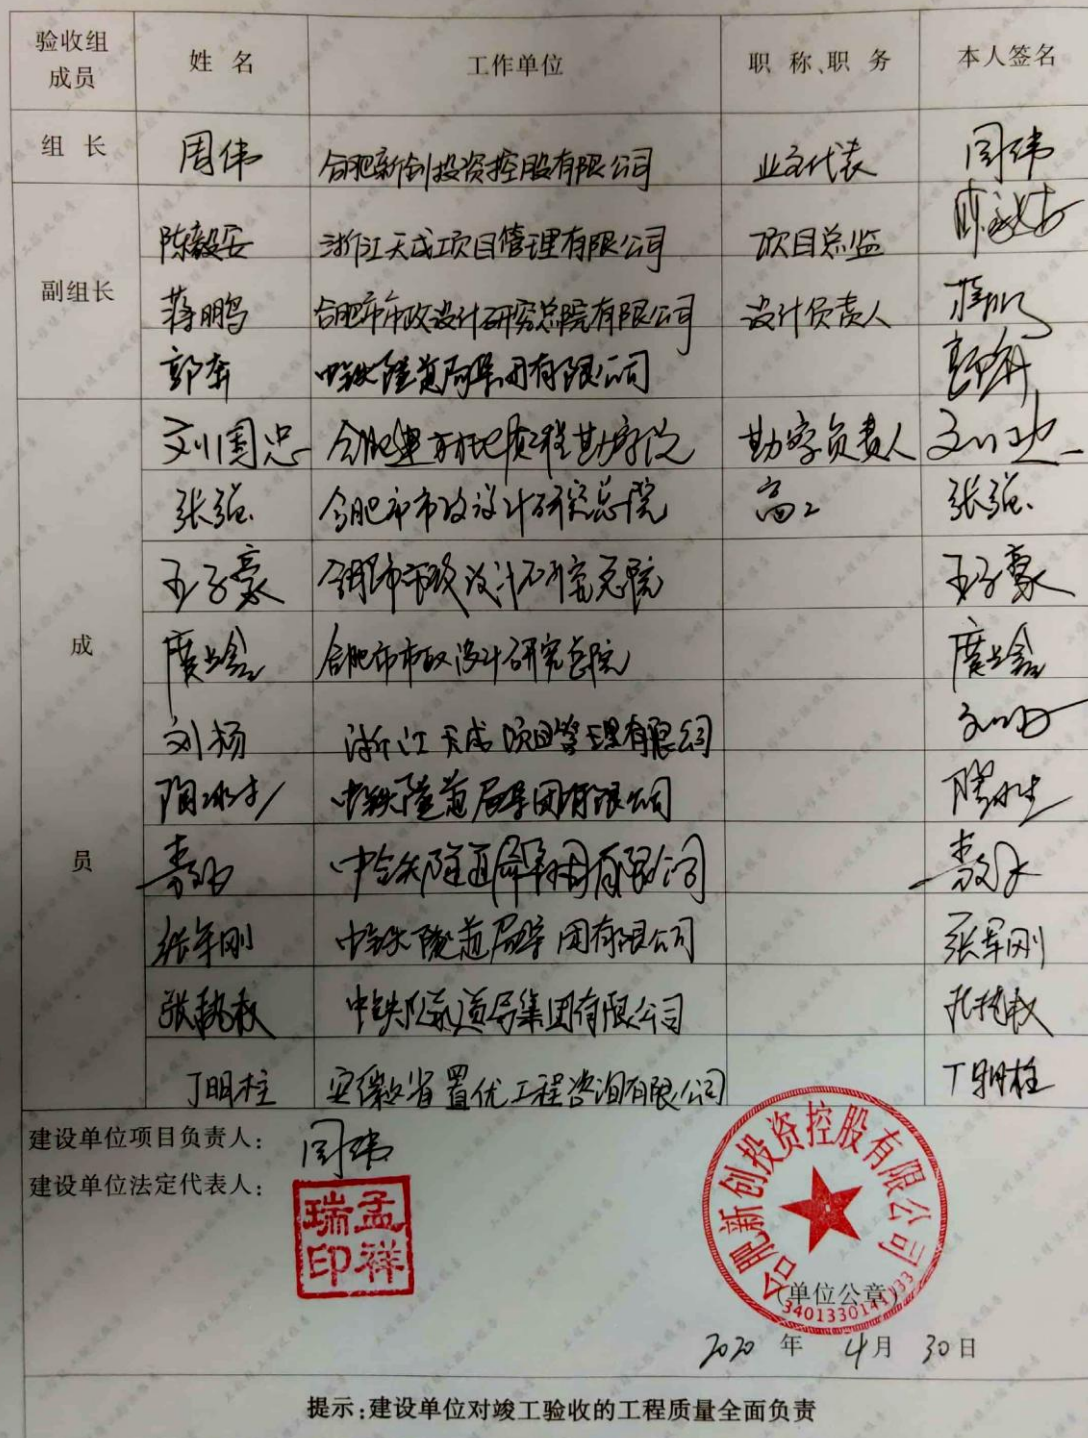 验收组成员 姓名 工作单位 职称、职务 本人签名
组长 周伟 合肥新创投资控股有限公司 业主代表 周伟
副组长
陈毅安 浙江天成项目管理有限公司 项目总监
蒋鹏 合肥市市政设计研究总院有限公司 设计负责人
郭奔 中铁隧道局集团有限公司
成员
刘国忠 合肥建材地质工程勘察院 勘察负责人
张强 合肥市市政设计研究总院 高工 张强
王子豪 合肥市市政设计研究总院 王子豪
合肥市市政设计研究总院
刘杨 浙江天成项目管理有限公司
中铁隧道局集团有限公司
中铁隧道局集团有限公司
张军刚 中铁隧道局集团有限公司 张军刚
中铁隧道局集团有限公司
丁明柱 安徽省置优工程咨询有限公司 丁明柱
建设单位项目负责人: 周伟
建设单位法定代表人:
孟祥瑞印
合肥新创投资控股有限公司
(单位公章)
2020年4月30日
提示:建设单位对竣工验收的工程质量全面负责